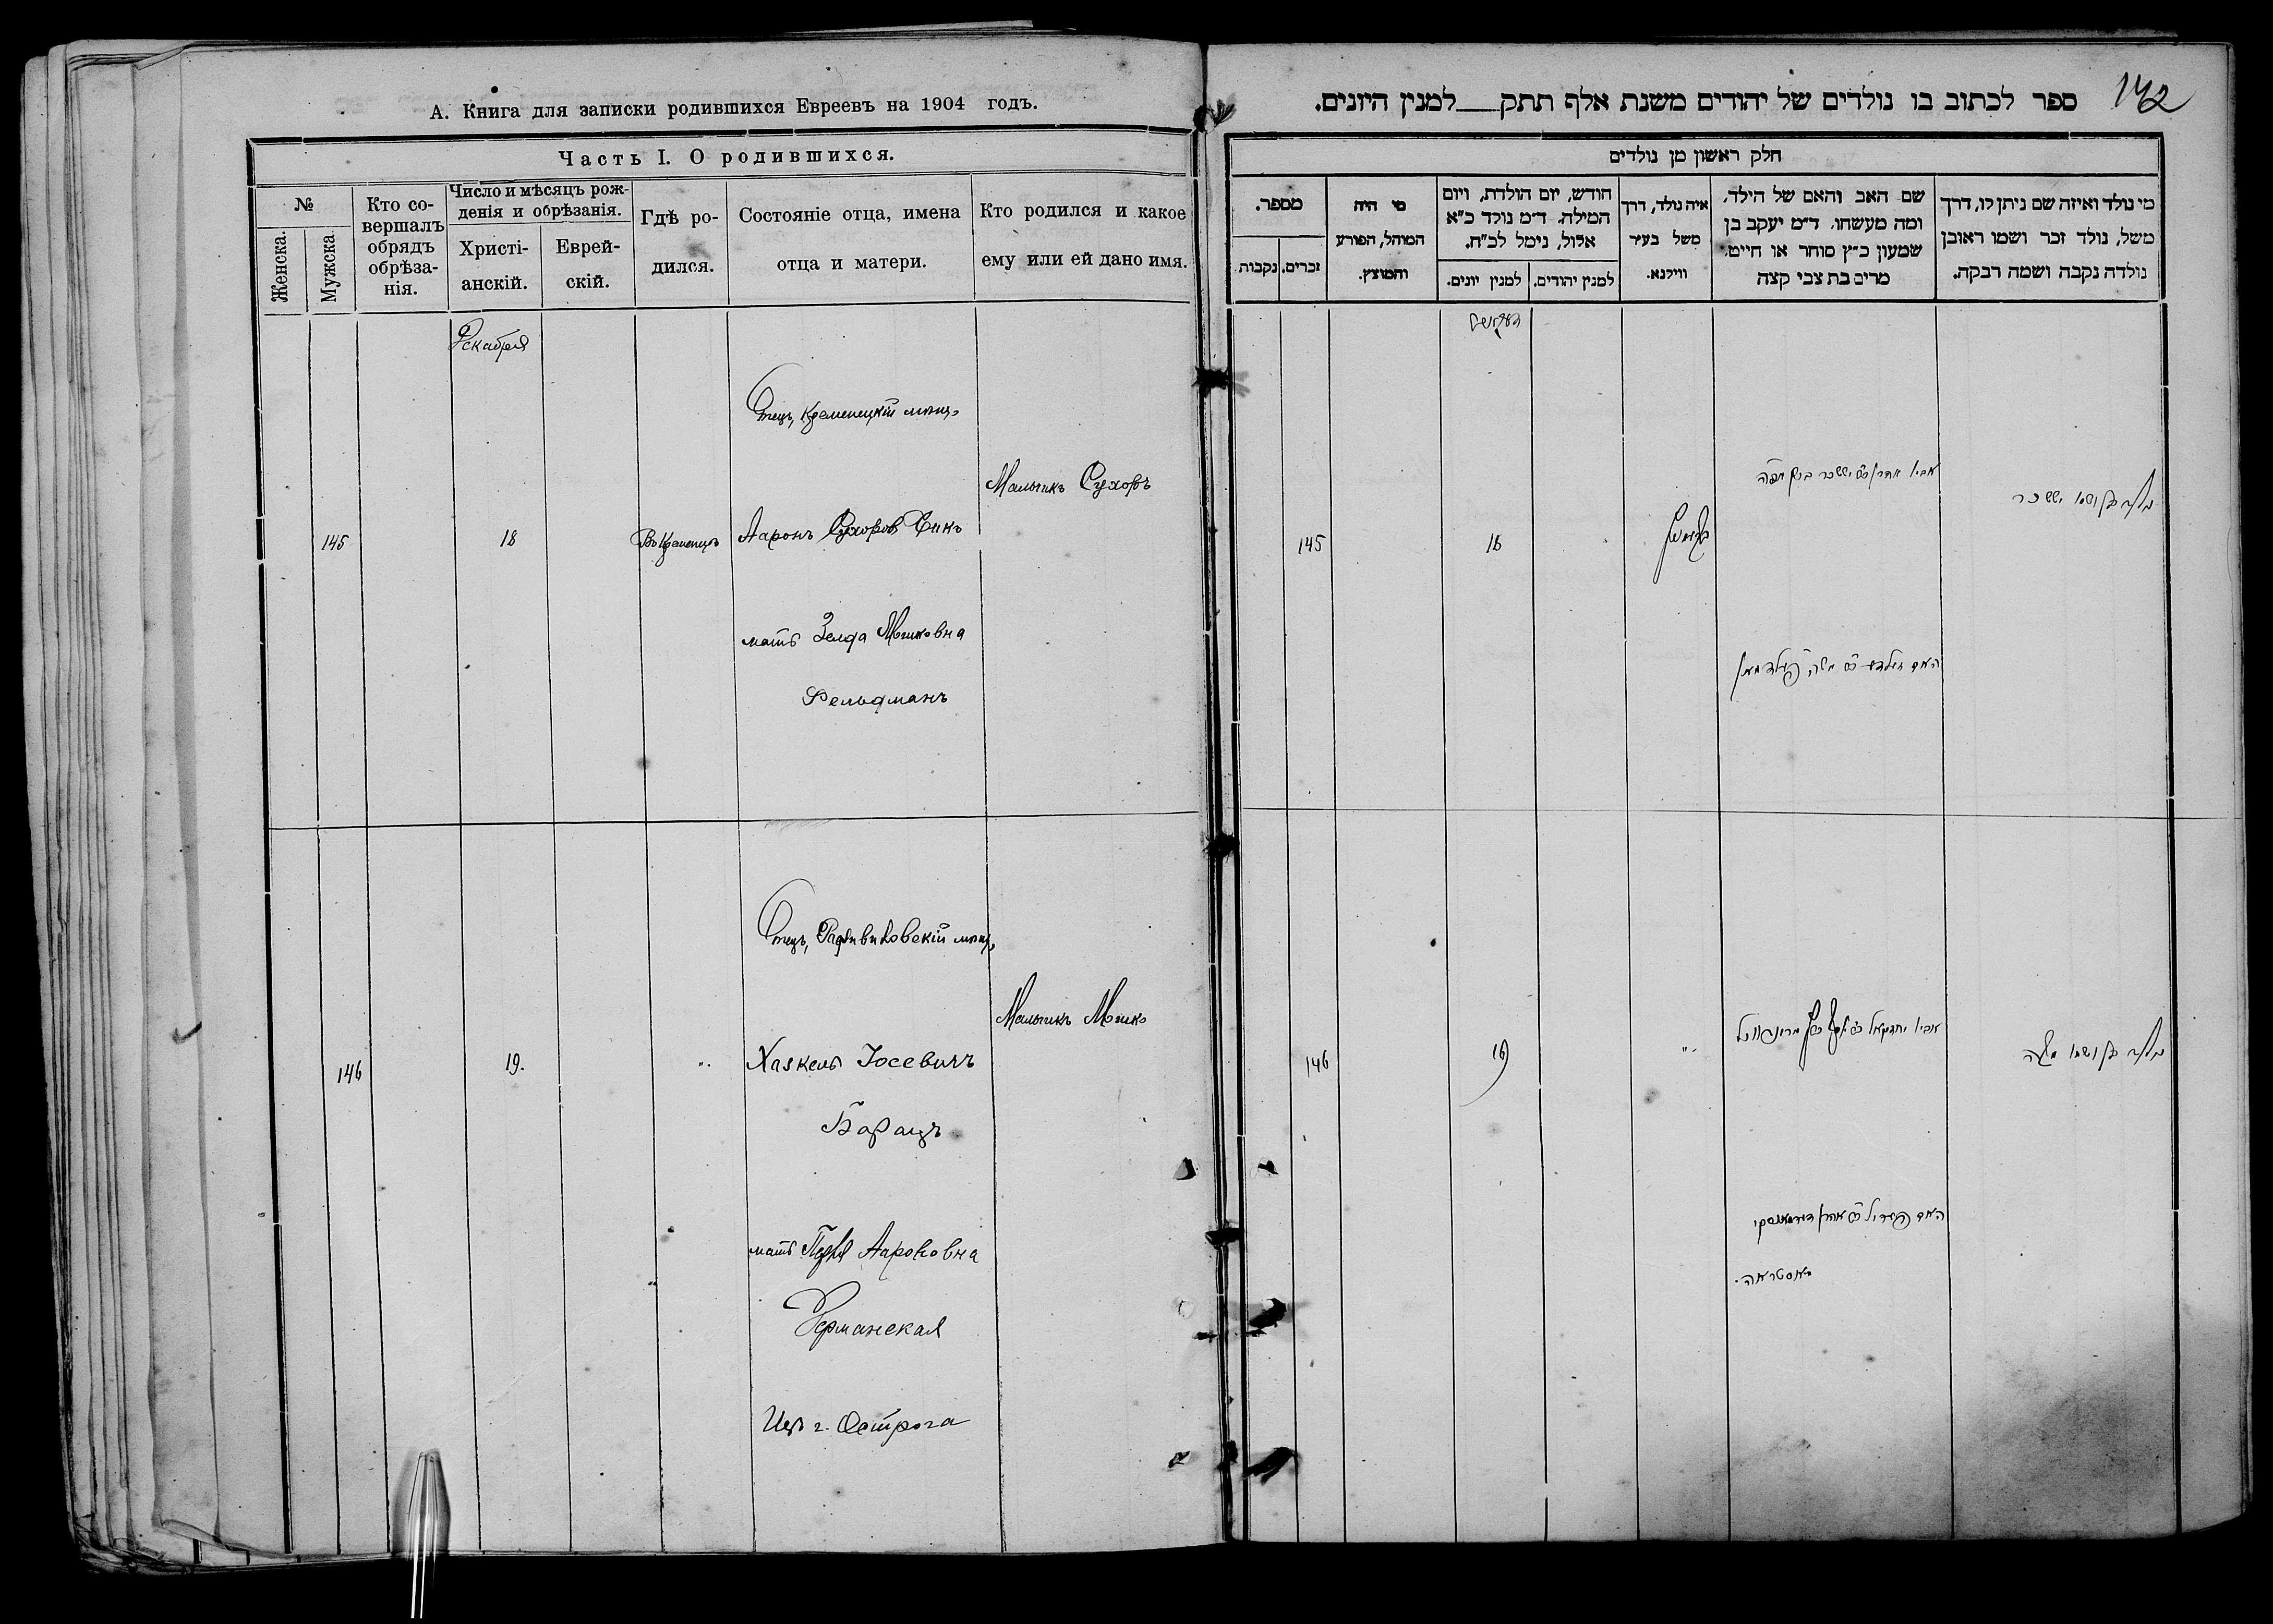 А. Книга для записки родившихся Евреевъ на 1904 годъ.
Часть I. О родившихся.
№
Женска.
Мужска.
Кто со-
вершалъ
обрядъ
обрѣза-
нія.
Число и мѣсяцъ рож-
денія и обрѣзанія.
Христі-
анскій.
Еврей-
скій.
Гдѣ ро-
дился.
Состояніе отца, имена
отца и матери.
Кто родился и какое
ему или ей дано имя.
Декабря
Отецъ, Кременецкій мѣщ.
Мальчикъ Сухоръ
145
18
Въ Кременцѣ
Ааронъ Сухоров
мать Зелда Мошковна
Фельдманъ
Отецъ, Радзивиловскій мѣщ.
Мальчикъ Мошко
146
19.
"
Хаскель Іосевичъ
Барацъ
мать Аароновна
Германская
Изъ г. Острога
142
ספר לכתוב בו נולדים של יהודים משנת אלף תתק למנין היונים.
חלק ראשון מן נולדים
מספר.
זכרים.
נקבות
מי היה
המוהל, הפורע
והמוצץ.
חודש, יום הולדת, ויום
המילה. ד״מ נולד כ״א
אלול, נימל לכ״ח.
למנין יונים.
למנין יהודים.
איה נולד, דרך
משל בעיר
ווילנא.
שם האב והאם של הילד.
ומה מעשהו. ד״מ יעקב בן
שמעון כ״ץ סוחר או חייט.
מרים בת צבי קצה
מי נולד ואיזה שם ניתן לו, דרך
משל, נולד זכר ושמו ראובן
נולדה נקבה ושמה רבקה.
145
18
אביו אהרן יששכר
נולד בן ושמו יששכר
משה פעלדמאן
146
19
"
אביו יחזקאל
נולד בן ושמו משה
האם אהרן